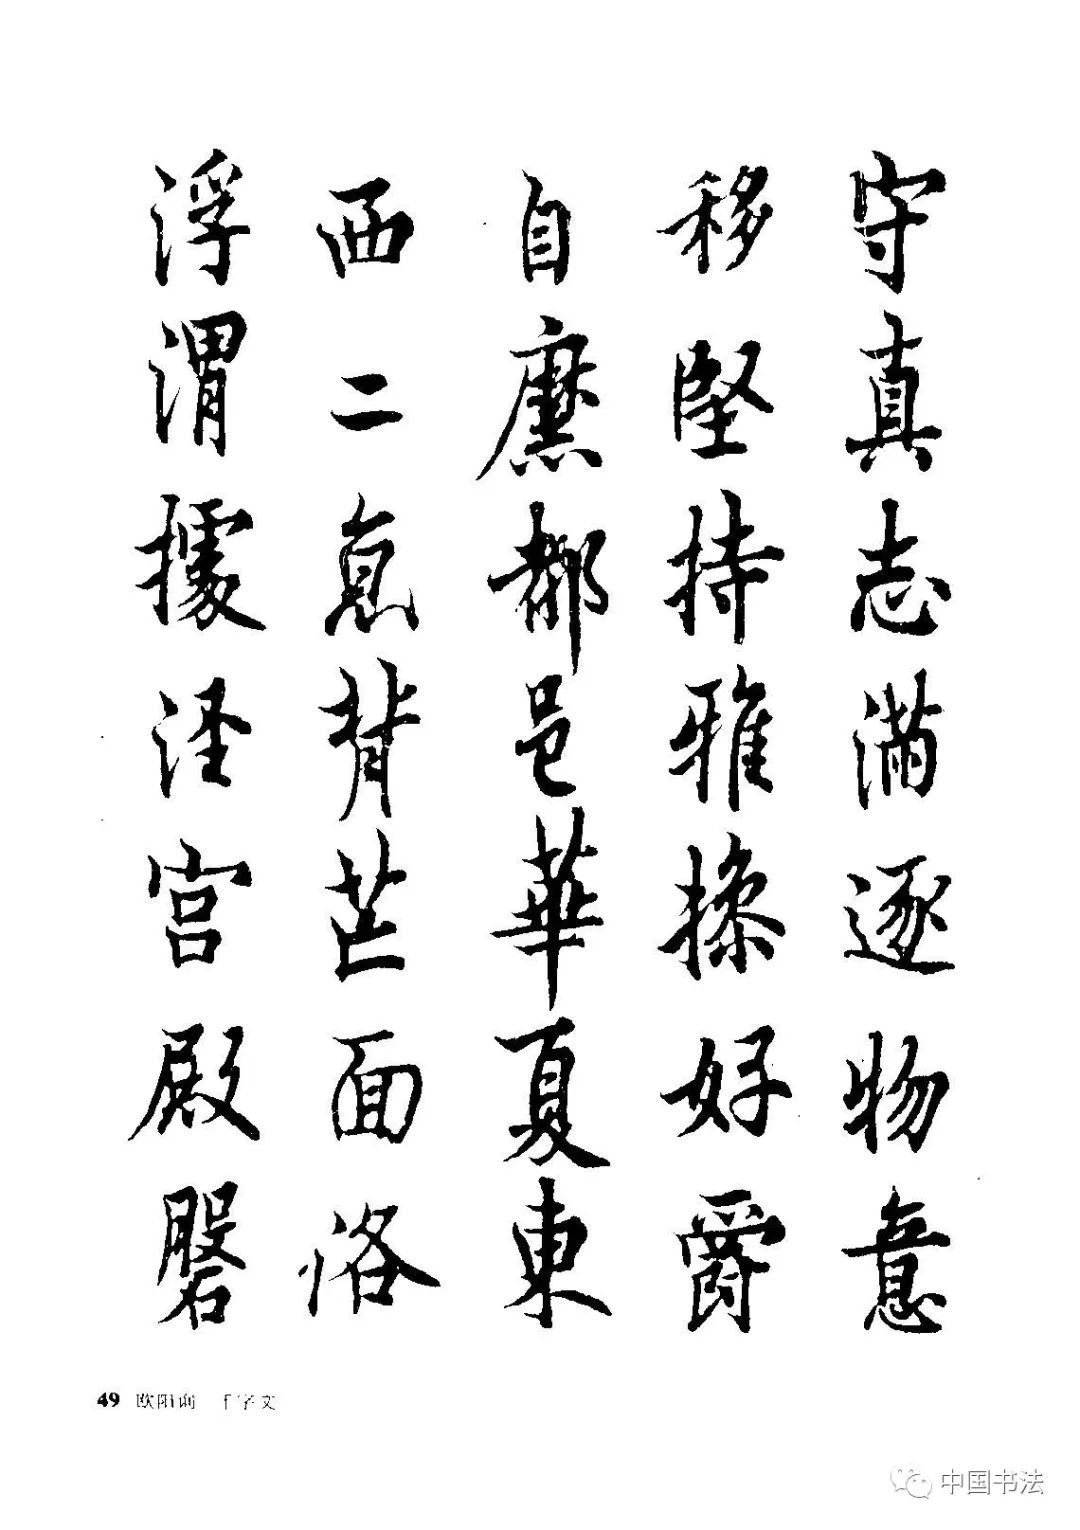 守真志滿逐物意
移堅持雅操好爵
自縻都邑華夏東
西二京背芒面洛
浮渭據涇宮殿磐
49 欧阳询 千字文
中国书法